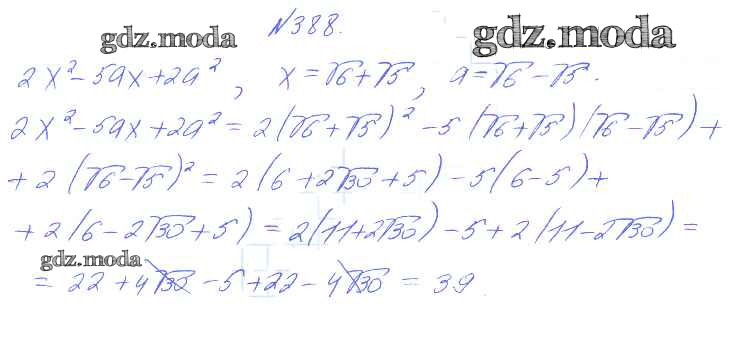 №388.
gdz.moda gdz.moda
2x² - 5ax + 2a², x = √6 + √5, a = √6 - √5.
2x² - 5ax + 2a² = 2(√6 + √5)² - 5(√6 + √5)(√6 - √5) +
+ 2(√6 - √5)² = 2(6 + 2√30 + 5) - 5(6 - 5) +
+ 2(6 - 2√30 + 5) = 2(11 + 2√30) - 5 + 2(11 - 2√30) =
gdz.moda
= 22 + 4√30 - 5 + 22 - 4√30 = 39.